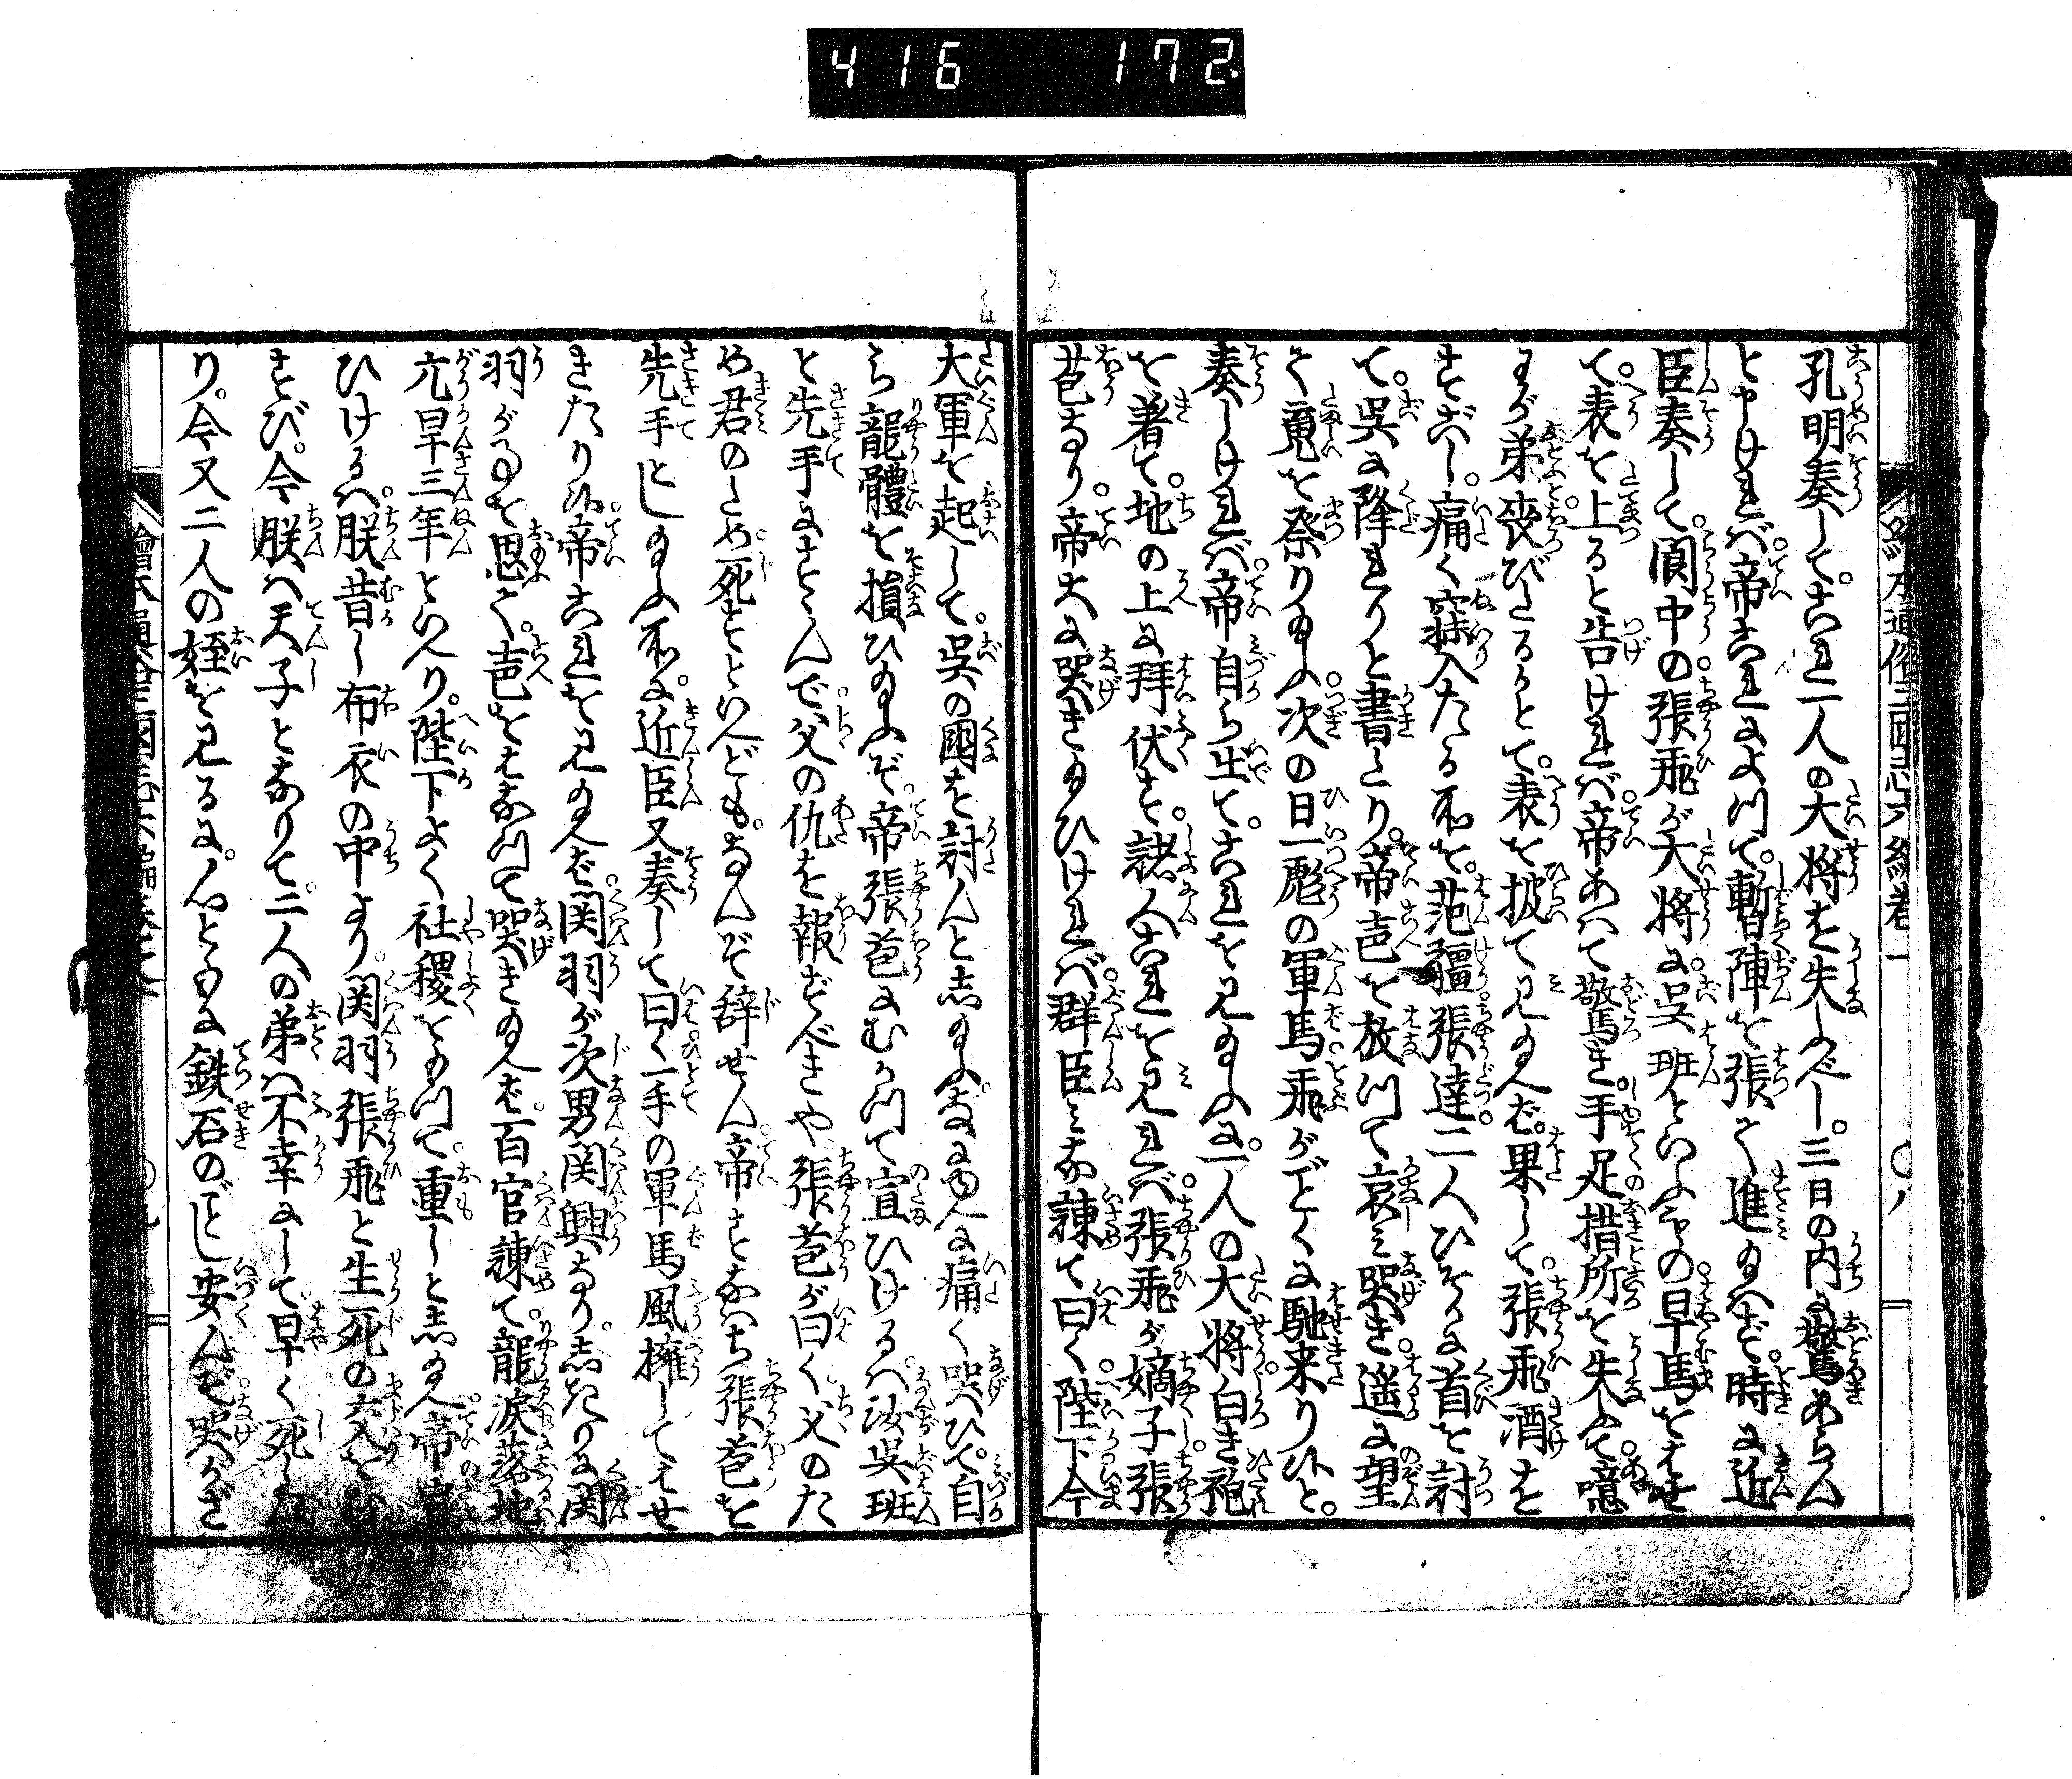 416 172
孔明奏して。これ一人の大将を失ふべし。三日の内に驚あらん
と申ければ。帝これによつて。暫陣を張て進給はず。時に近
臣奏して。閬中の張飛が大将に。呉班といふ者の。早馬をはせ
て。表を上ると告ければ。帝あはて驚き。手足措所を失ふて。噫
わが弟喪びたるかとて。表を披て見給へば。果して。張飛酒を
すごし。痛く寐入たる所を。范疆張達。二人ひそかに首を討
て。呉に降れりと書たり。帝声を放つて哀み哭き。遥に望
て竟を祭り給ふ。次の日一彪の軍馬。飛がごとくに馳来り候と。
奏しければ。帝自ら出て。これを見給ふに。一人の大将。白き袍
を着て。地の上に拝伏す。諸人これを見れば。張飛が嫡子張
苞なり。帝大に哭き給ひければ。群臣みな諌て曰く。陛下今
大軍を起して。呉の國を討んとし給ふ。なにゆへに痛く哭ひて。自
ら龍體を損ひ給ふぞ。帝張苞にむかつて宣ひけるは。汝呉班
と先手にすゝんで。父の仇を報ずべきや。張苞が曰く。父のた
め君のため。死すといへども。なんぞ辞せん。帝すなはち張苞を
先手とし給ふ所に。近臣又奏して曰く。一手の軍馬風擁してはせ
きたり候。帝これを見給へば。関羽が次男関興なりしかりに関
羽がことを思て。声をはなつて哭き給へば。百官諌て。龍涙落地
亢旱三年といへり。陛下よく社稷をもつて。重しとし給へ帝宣
ひけるは。朕昔し布衣の中より関羽張飛と生死の交をむ
すび。今朕は天子となりて。二人の弟は不幸にして。早く死した
り。今又二人の姪を見るに。心とゝもに鉄石のごとし安んぞ。哭かざ